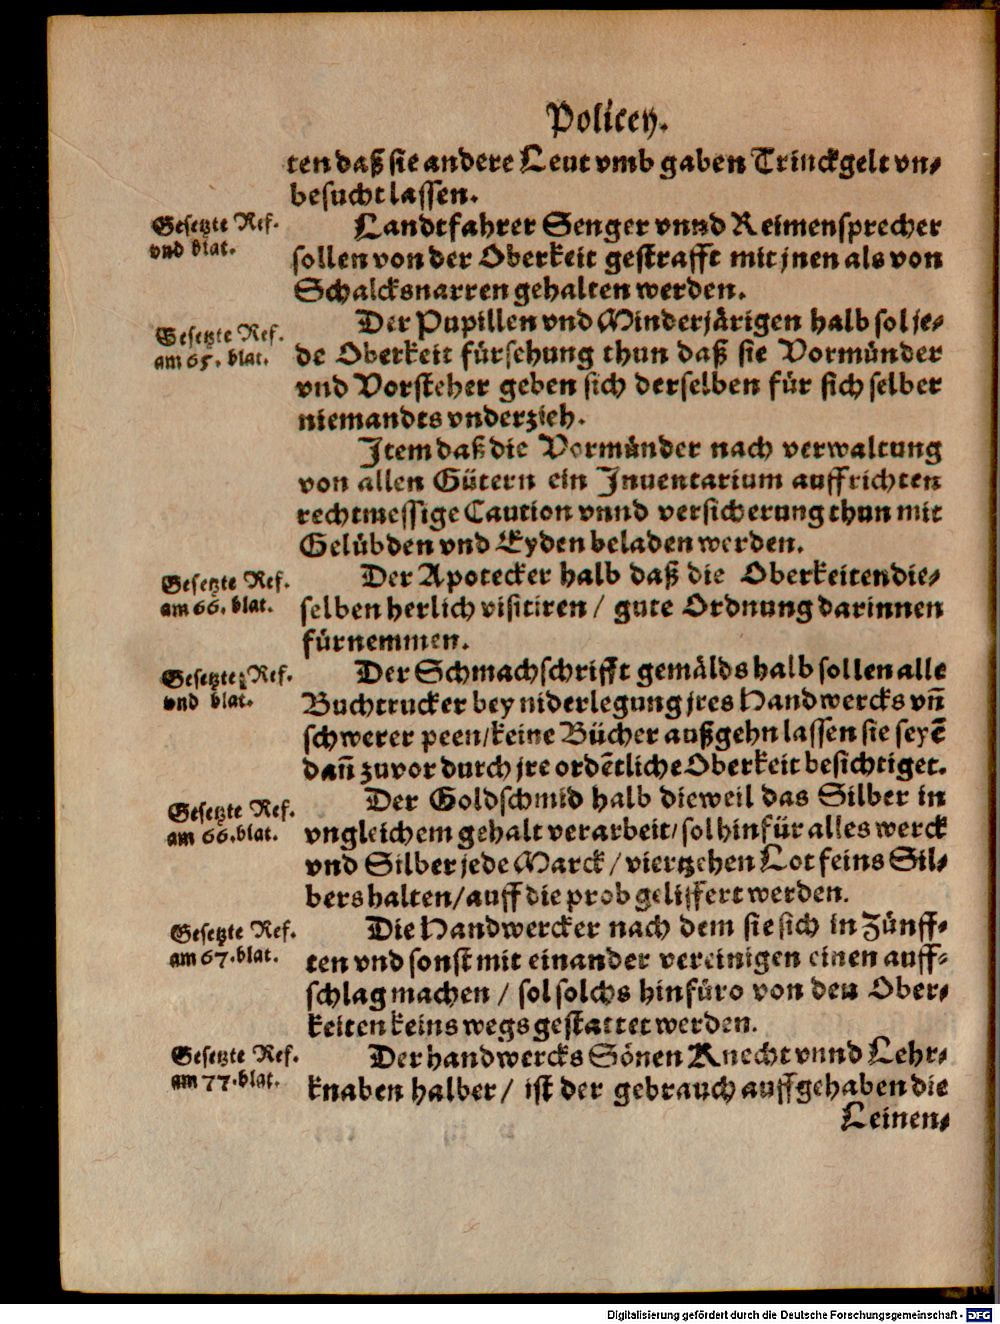 Policey.
ten daß sie andere Leut vmb gaben Trinckgelt vn⸗
besucht lassen.
Gesetzte Ref.
vnd blat.
Landtfahrer Senger vnnd Reimensprecher
sollen von der Oberkeit gestrafft mit jnen als von
Schalcksnarren gehalten werden.
Gesetzte Ref.
am 65. blat.
Der Pupillen vnd Minderjärigen halb sol je⸗
de Oberkeit fürsehung thun daß sie Vormünder
vnd Vorsteher geben sich derselben für sich selber
niemandts vnderzieh.
Item daß die Vormünder nach verwaltung
von allen Gütern ein Inuentarium auffrichten
rechtmessige Caution vnnd versicherung thun mit
Gelübden vnd Eyden beladen werden.
Gesetzte Ref.
am 66. blat.
Der Apotecker halb daß die Oberkeiten die⸗
selben herlich visitiren / gute Ordnung darinnen
fürnemmen.
Gesetzte Ref.
vnd blat.
Der Schmachschrifft gemälds halb sollen alle
Buchtrucker bey niderlegung jres Handwercks vñ
schwerer peen/ keine Bücher außgehn lassen sie seyē
dañ zuvor durch jre ordētliche Oberkeit besichtiget.
Gesetzte Ref.
am 66. blat.
Der Goldschmid halb dieweil das Silber in
vngleichem gehalt verarbeit/ sol hinfür alles werck
vnd Silber jede Marck / viertzehen Lot feins Sil⸗
bers halten/ auff die prob geliffert werden.
Gesetzte Ref.
am 67. blat.
Die Handwercker nach dem sie sich in Zünff⸗
ten vnd sonst mit einander vereinigen einen auff⸗
schlag machen / sol solchs hinfüro von den Ober⸗
keiten keins wegs gestattet werden.
Gesetzte Ref.
am 77. blat.
Der handwercks Sönen Knecht vnnd Lehr⸗
knaben halber / ist der gebrauch auffgehaben die
Leinen⸗
Digitalisierung gefördert durch die Deutsche Forschungsgemeinschaft - DFG